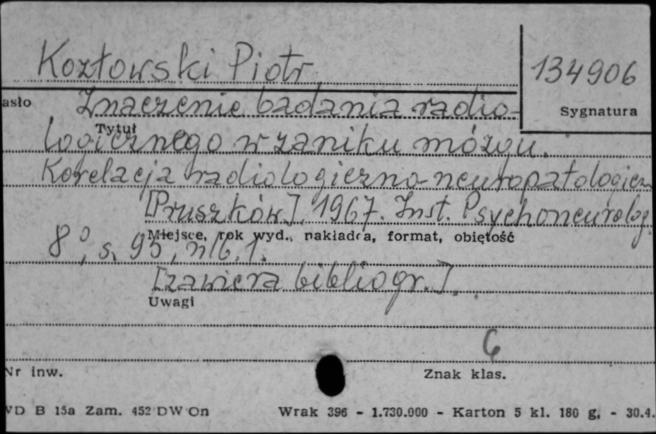 Kozłowski Piotr
134906
asło
Znaczenie badania radio-
Sygnatura
Tytuł
logicznego w zaniku mózgu.
Korelacja radiologiczno-neuropatologiczn
[Pruszków], 1967. Inst. Psychoneurolog.
Miejsce, rok wyd., nakładca, format, objętość
8°, s. 95, nlb. 1.
[zawiera bibliogr.].
Uwagi
6
Nr inw.
Znak klas.
VD B 15a Zam. 452 DW On Wrak 396 - 1.730.000 - Karton 5 kl. 180 g. - 30.4.